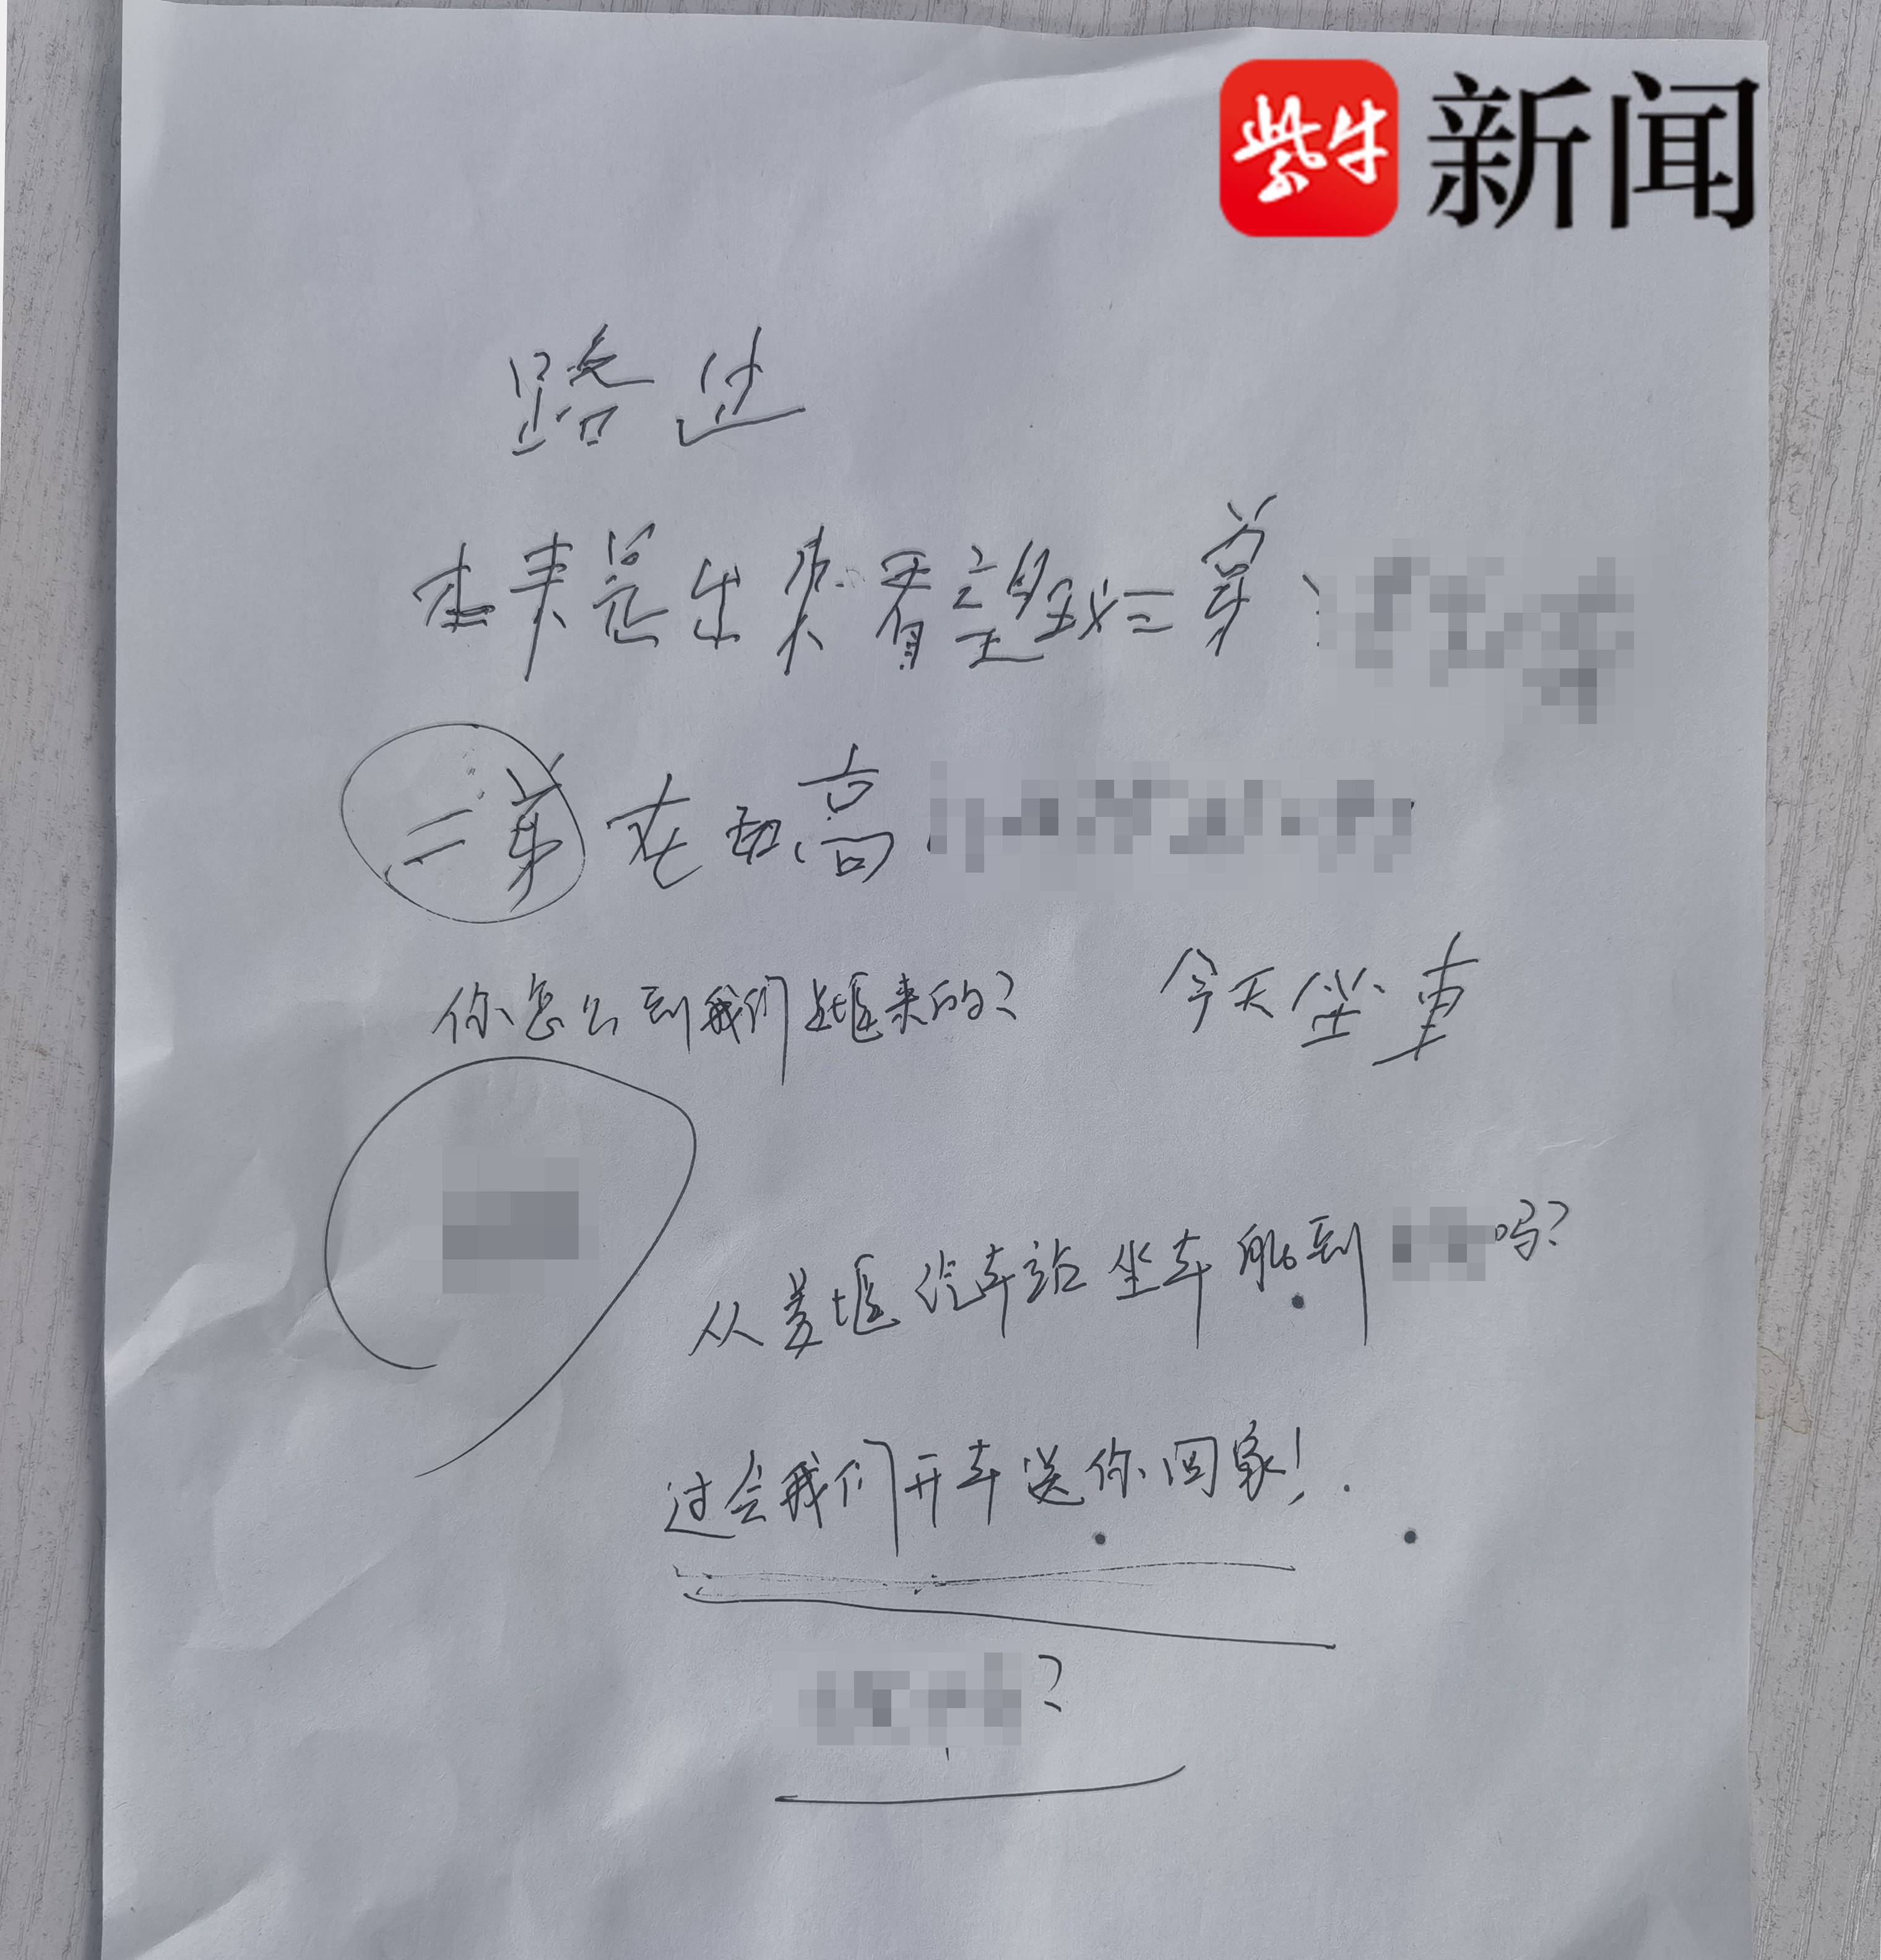 紫牛新闻
路过
本来是出来看望我二弟
二弟在 高
你怎么到我们 堰来的? 今天坐车
从姜堰汽车站坐车能到 吗?
过会我们开车送你回家!
?